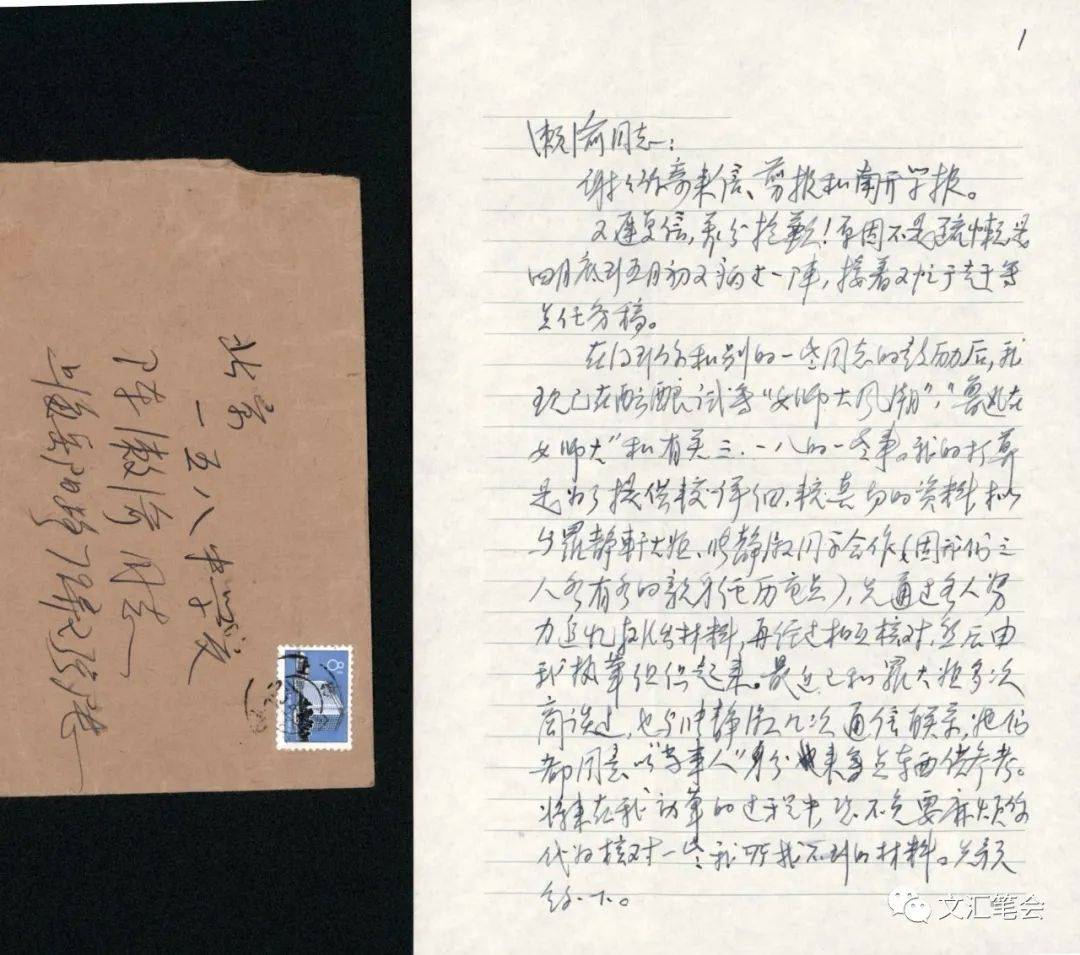 北京
一五八中学
陈漱渝同志
1
漱渝同志：
谢谢你寄来信、剪报和南开学报。
又迟复信,养分抱歉！原因不是疏懒,是
四月底到五月初又病了一阵，接着又忙于赶写
点任务稿。
在得到你和别的一些同志的鼓励后,我
现已在酝酿试写“女师大风潮”，“鲁迅在
女师大”和有关三.一八的一些事。我的打算
是为了提供较详细,较真切的资料,拟
与罗静轩大姐、陆静淑同志合作(因我们三
人各有各的亲身经历重点),先通过各人努
力追忆,写出材料,再经过相互核对,然后由
我执笔组织起来。最近已和罗大姐多次
商谈过,也与静淑几次通信联系,她们
都同意以“当事人”身分来写点东西供参考。
将来在我动笔的过程中,恐不免要麻烦你
代为核对一些我所找不到的材料。先预
约一下。
8分
文汇笔会